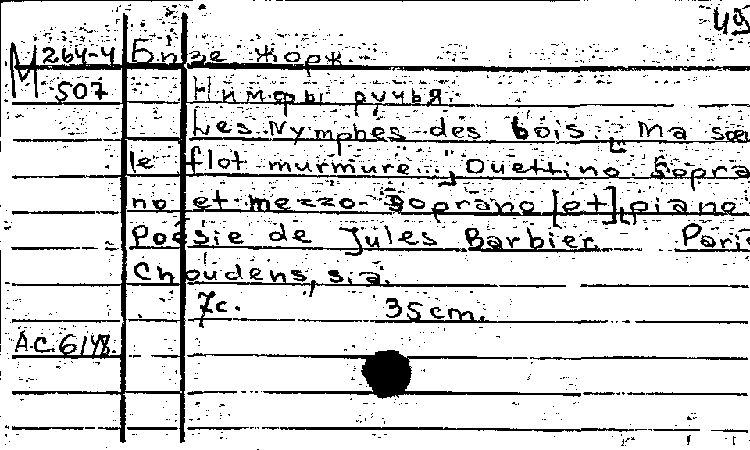 49
М 264-4 Бизе Жорж.
507 Нимфы ручья.
Les Nymphes des bois. [Ma sœu
le flot murmure...] Duettino sopra
no et mezzo-soprano [et] piano
Poésie de Jules Barbier Pari
Choudens, s.a.
7c. 35cm.
A.C. 6148.